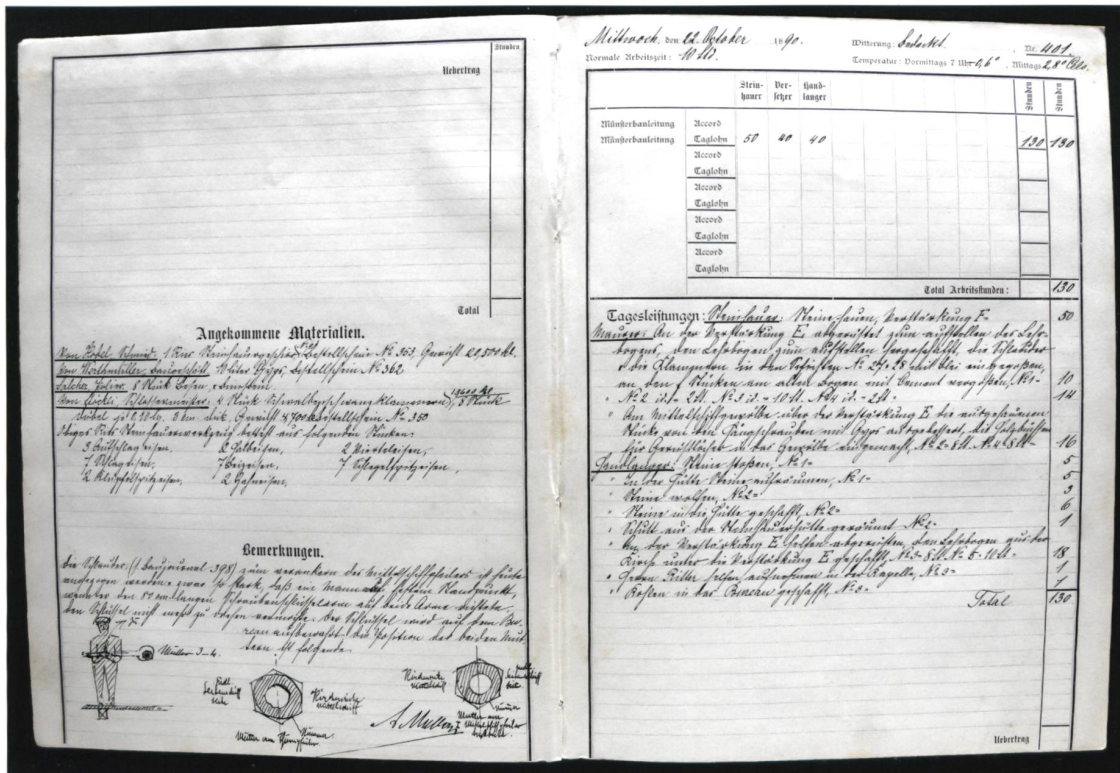 Stunden
Uebertrag
Total
Angekommene Materialien.
Von Hotel Schmid: 1 Steinhauergeschirr Bestellschein No 363, Gewicht 20,500 kl.
10 Liter Gyps, Bestellschein No 362
8 Stück Besen,
Schlossermeister: 4 Stück Schwalbenschwanzklammern 5 Stück
Dübel Gewicht 4,700 Bestellschein No 350
Steinhauerwerkzeug besteht aus folgenden Stücken:
3 2 Halbeisen, 2 Vierteleisen,
7 Schlageisen, 7 Beizeisen, 7 Schlegelspitzeisen,
2 Klüpfelspitzeisen, 2 Zahneisen,
Bemerkungen.
Die (s. Baujournal 398) zum verankern des Mittelschiffpfeilers ist heute
angezogen worden, zwar so stark, daß ein Mann auf festem Standpunkt,
den 80 cm langen Schraubenschlüsselarm auf beide Arme
den Schlüssel nicht mehr zu drehen vermochte. Der Schlüssel wird auf dem Bu-
reau aufbewahrt; die Position der beiden Mut-
tern ist folgende:
Müller 3-4.
südl.
Seitenschiff
seite
Kirchweite
Mittelschiff
Mutter am
Kirchweite
Mittelschiff
südl.
Seitenschiff
seite
Mutter am
A. Müller
Mittwoch, den 22. October 1890. Witterung: bedeckt. Nr. 401
Normale Arbeitszeit: 10 Std. Temperatur: Vormittags 7 Uhr 0,6° Mittags 2,8° Cels.
Stein-hauer Ver-setzer Hand-langer Stunden Stunden
Münsterbauleitung Accord
Münsterbauleitung Taglohn 50 40 40 130 130
Accord
Taglohn
Accord
Taglohn
Accord
Taglohn
Accord
Taglohn
Total Arbeitsstunden: 130
Tagesleistungen: Steinhauer: Steine hauen, Verstärkung E 50
Maurer: An der Verstärkung E abgerüstet zum aufstellen der Lehr-
bogens, den Lehrbogen zum aufstellen hergeschafft, die Schlauder
& die Klammern in den Schichten No 27 & 28 mit Blei eingegoßen,
an den Stücken am alten Bogen mit Cement vergoßen, No 1 10
No 2 id. 2 St. No 3 id. 10 St. No 4 id. 2 St. 14
Am Mittelschiffgewölbe über der Verstärkung E die ausgehauenen
Stücke von den Hängschrauben mit Gyps ausgebessert, die Holzbüchsen
für Gerüstlöcher in das Gewölbe eingemacht, No 2 8 St. No 4 8 St. 16
Handlanger: Steine stoßen, No 1 5
In der Hütte Steine aufräumen, No 1 5
Steine waschen, No 2 3
Steine in die Hütte geschafft, No 2 6
Schutt aus der Steinhauerhütte geräumt No 2 1
An der Verstärkung E helfen abgerüsten, den Lehrbogen aus der
Kirche unter die Verstärkung E geschafft, No 3 8 St. No 5 10 St. 18
Herrn Ritter helfen aufnehmen in der Kapelle, No 3 1
Kohlen in das Bureau geschafft, No 3 1
Total 130
Uebertrag